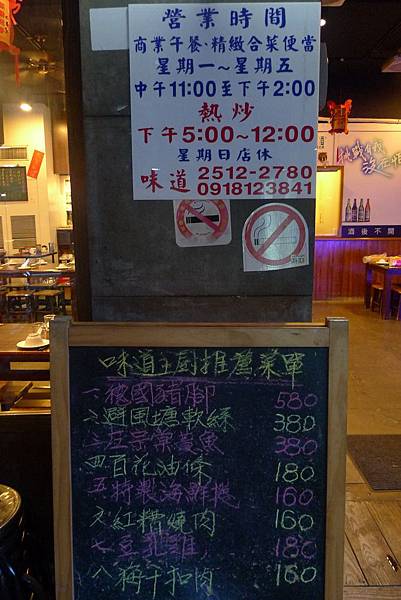 營業時間
商業午餐、精緻合菜便當
星期一～星期五
中午11:00至下午2:00
熱炒
下午5:00~12:00
星期日店休
味道 2512-2780
0918123841
酒後不開
味道主廚推薦菜單
一德國豬腳 580
二避風塘軟絲 380
三 380
四百花油條 180
五特製海鮮捲 160
六紅糟燒肉 160
七豆乳雞 180
八梅干扣肉 160